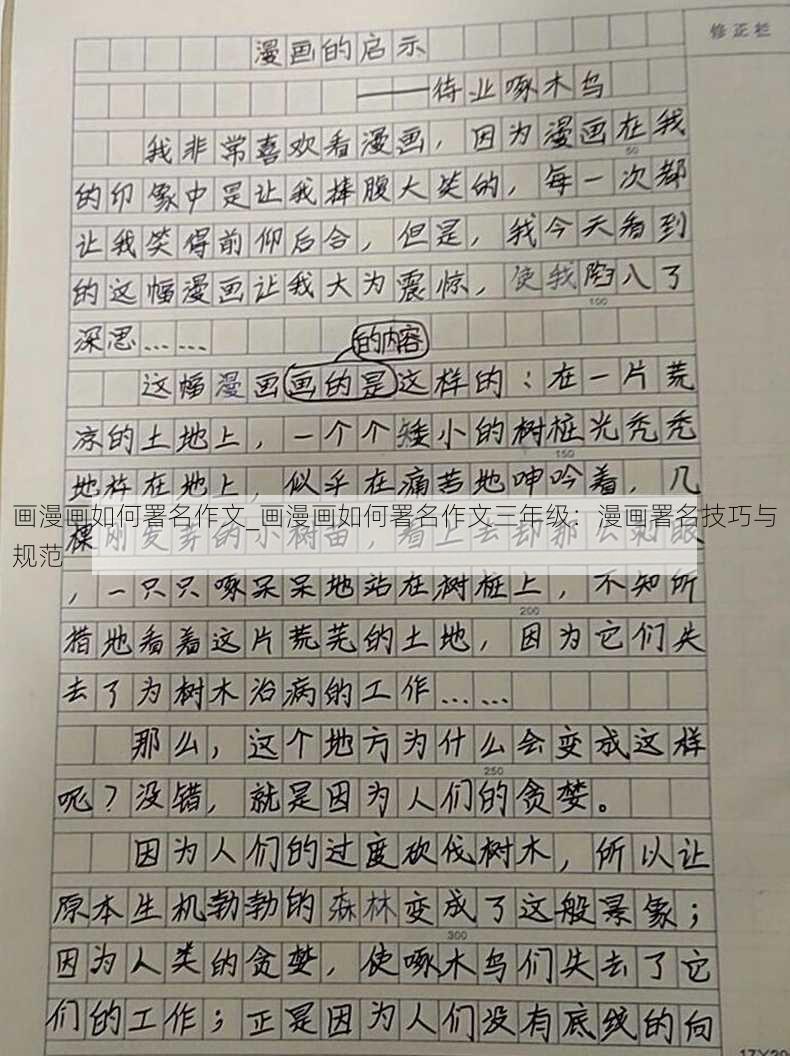 修正栏
漫画的启示
——待业啄木鸟
我非常喜欢看漫画，因为漫画在我
50
的印象中是让我捧腹大笑的，每一次都
让我笑得前仰后合，但是，我今天看到
的这幅漫画让我大为震惊，使我陷入了
100
深思……
的内容
这幅漫画画的是这样的：在一片荒
凉的土地上，一个个矮小的树桩光秃秃
150
地杵在地上，似乎在痛苦地呻吟着，几
画漫画如何署名作文_画漫画如何署名作文三年级：漫画署名技巧与
规范
棵刚发芽的小树苗，看上去却那么刺眼
，一只只啄呆呆地站在树桩上，不知所
200
措地看着这片荒芜的土地，因为它们失
去了为树木治病的工作……
那么，这个地方为什么会变成这样
250
呢？没错，就是因为人们的贪婪。
因为人们的过度砍伐树木，所以让
原本生机勃勃的森林变成了这般景象；
300
因为人类的贪婪，使啄木鸟们失去了它
们的工作；正是因为人们没有底线的向
17X20